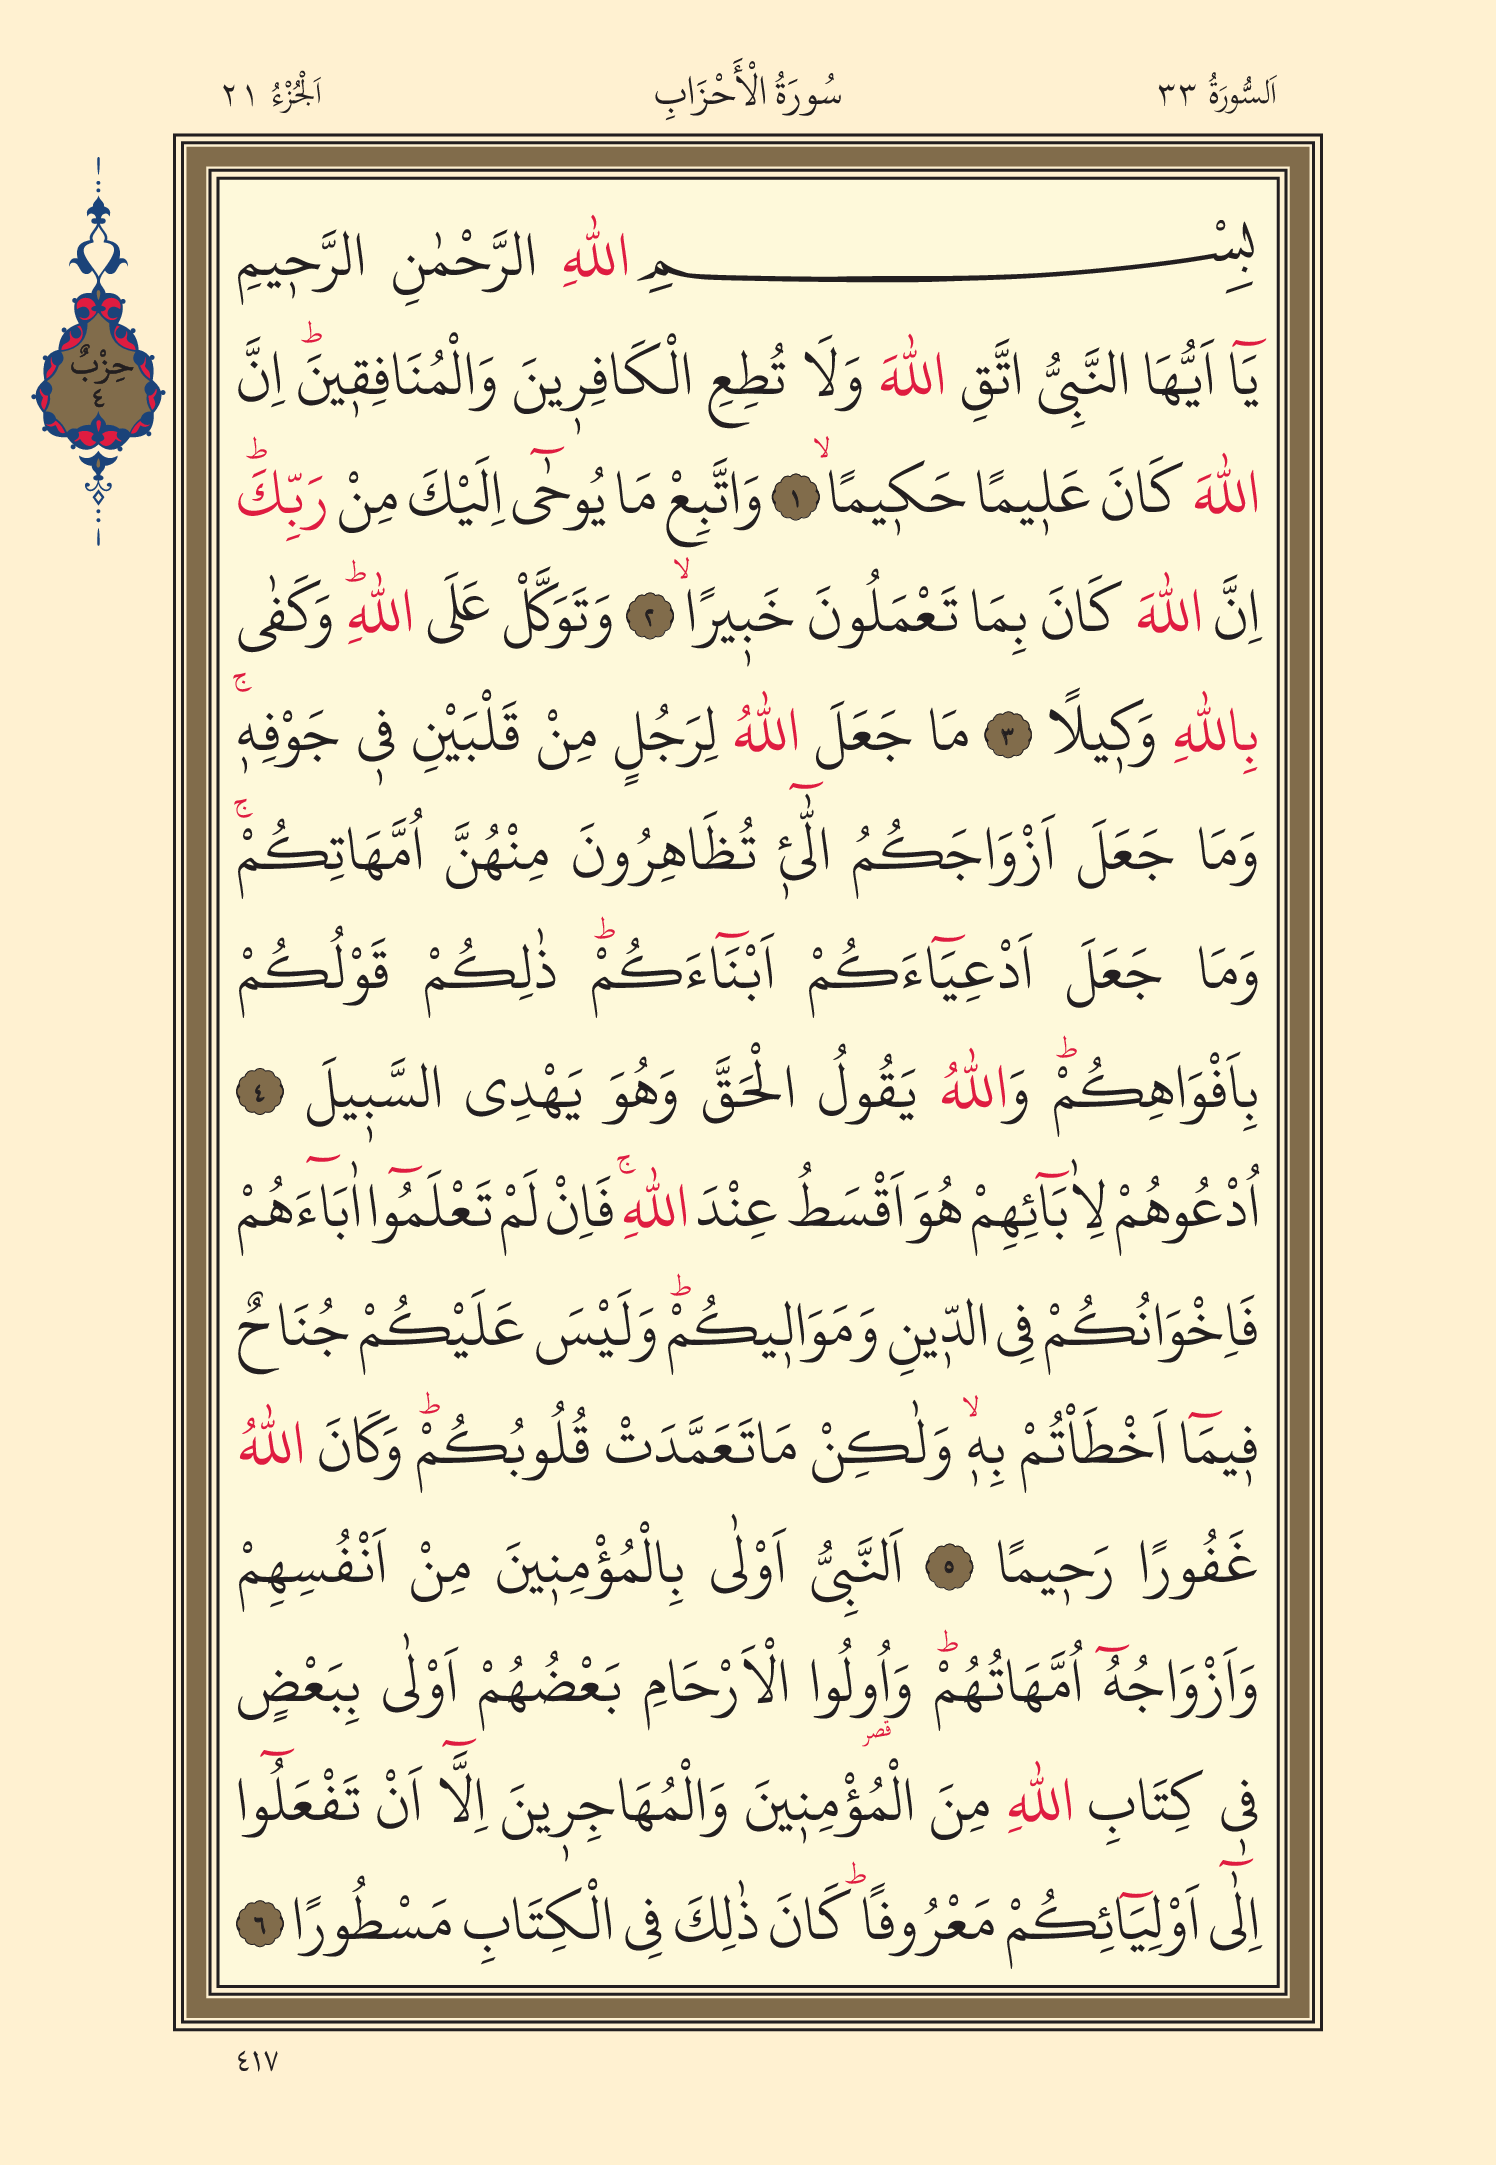 اَلسُّورَةُ ٣٣ سُورَةُ الْأَحْزَابِ اَلْجُزْءُ ٢١
حِزْبٌ
٤
بِسْمِ اللّٰهِ الرَّحْمٰنِ الرَّح۪يمِ
يَٓا اَيُّهَا النَّبِيُّ اتَّقِ اللّٰهَ وَلَا تُطِعِ الْكَافِر۪ينَ وَالْمُنَافِق۪ينَۜ اِنَّ
اللّٰهَ كَانَ عَل۪يمًا حَك۪يمًاۙ ١ وَاتَّبِعْ مَا يُوحٰٓى اِلَيْكَ مِنْ رَبِّكَۜ
اِنَّ اللّٰهَ كَانَ بِمَا تَعْمَلُونَ خَب۪يرًاۙ ٢ وَتَوَكَّلْ عَلَى اللّٰهِۜ وَكَفٰى
بِاللّٰهِ وَك۪يلًا ٣ مَا جَعَلَ اللّٰهُ لِرَجُلٍ مِنْ قَلْبَيْنِ ف۪ي جَوْفِه۪ۚ
وَمَا جَعَلَ اَزْوَاجَكُمُ الّٰٓئ۪ تُظَاهِرُونَ مِنْهُنَّ اُمَّهَاتِكُمْۚ
وَمَا جَعَلَ اَدْعِيَٓاءَكُمْ اَبْنَٓاءَكُمْۜ ذٰلِكُمْ قَوْلُكُمْ
بِاَفْوَاهِكُمْۜ وَاللّٰهُ يَقُولُ الْحَقَّ وَهُوَ يَهْدِى السَّب۪يلَ ٤
اُدْعُوهُمْ لِاٰبَٓائِهِمْ هُوَ اَقْسَطُ عِنْدَ اللّٰهِۚ فَاِنْ لَمْ تَعْلَمُٓوا اٰبَٓاءَهُمْ
فَاِخْوَانُكُمْ فِى الدّ۪ينِ وَمَوَال۪يكُمْۜ وَلَيْسَ عَلَيْكُمْ جُنَاحٌ
ف۪يمَٓا اَخْطَاْتُمْ بِه۪ۙ وَلٰكِنْ مَاتَعَمَّدَتْ قُلُوبُكُمْۜ وَكَانَ اللّٰهُ
غَفُورًا رَح۪يمًا ٥ اَلنَّبِيُّ اَوْلٰى بِالْمُؤْمِن۪ينَ مِنْ اَنْفُسِهِمْ
وَاَزْوَاجُهُٓ اُمَّهَاتُهُمْۜ وَاُولُوا الْاَرْحَامِ بَعْضُهُمْ اَوْلٰى بِبَعْضٍ
قصر
ف۪ي كِتَابِ اللّٰهِ مِنَ الْمُؤْمِن۪ينَ وَالْمُهَاجِر۪ينَ اِلَّٓا اَنْ تَفْعَلُٓوا
اِلٰٓى اَوْلِيَٓائِكُمْ مَعْرُوفًاۜ كَانَ ذٰلِكَ فِى الْكِتَابِ مَسْطُورًا ٦
٤١٧